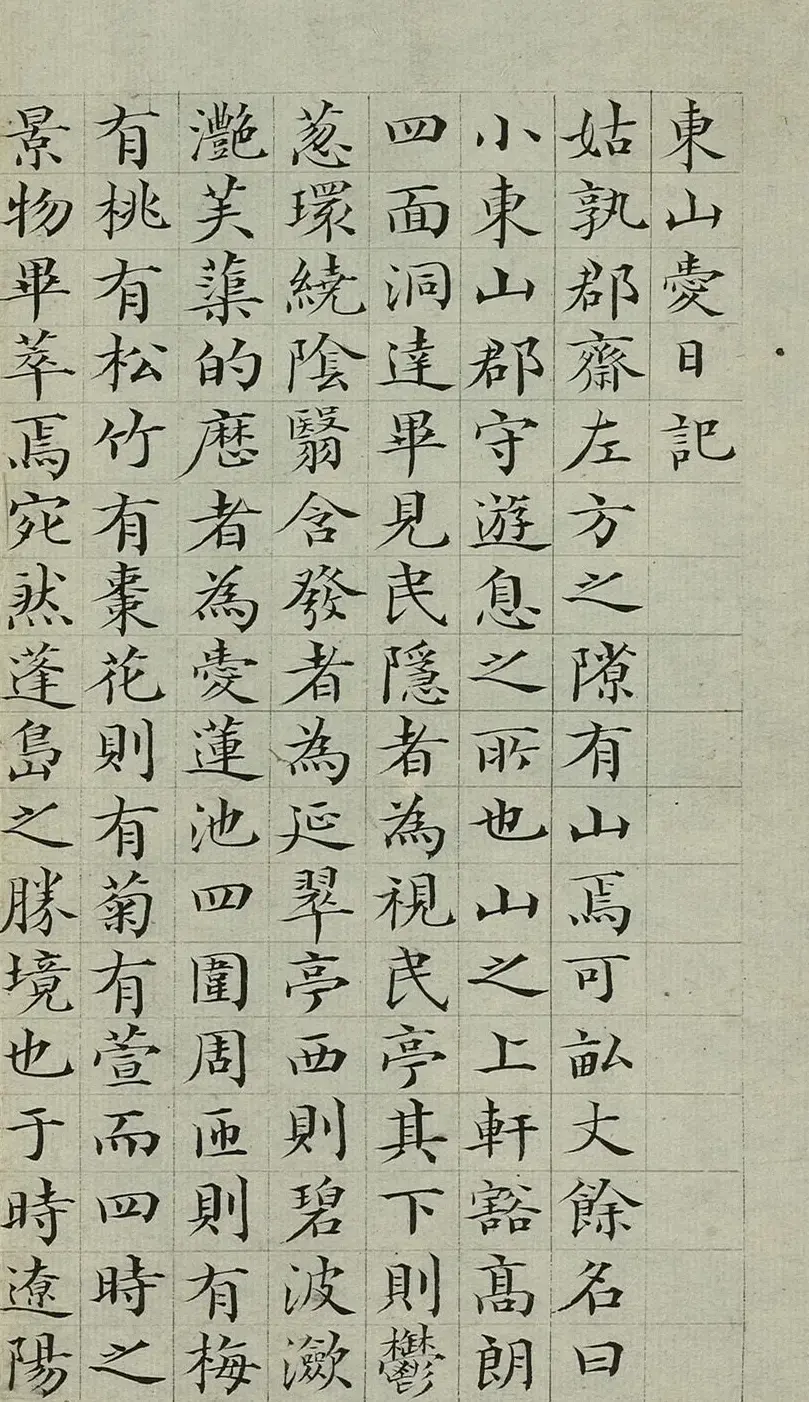 東山愛日記
姑孰郡齋左方之隙有山焉可畝丈餘名曰
小東山郡守遊息之所也山之上軒豁高朗
四面洞達畢見民隱者為視民亭其下則鬱
葱環繞陰翳含發者為延翠亭西則碧波瀲
灩芙蕖的歷者為愛蓮池四圍周匝則有梅
有桃有松竹有棗花則有菊有萱而四時之
景物畢萃焉宛然蓬島之勝境也于時遼陽